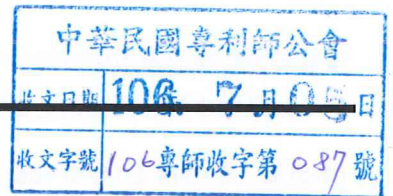 中華民國專利師公會
收文日期 106年 7月05日
收文字號 106專師收字第 087 號